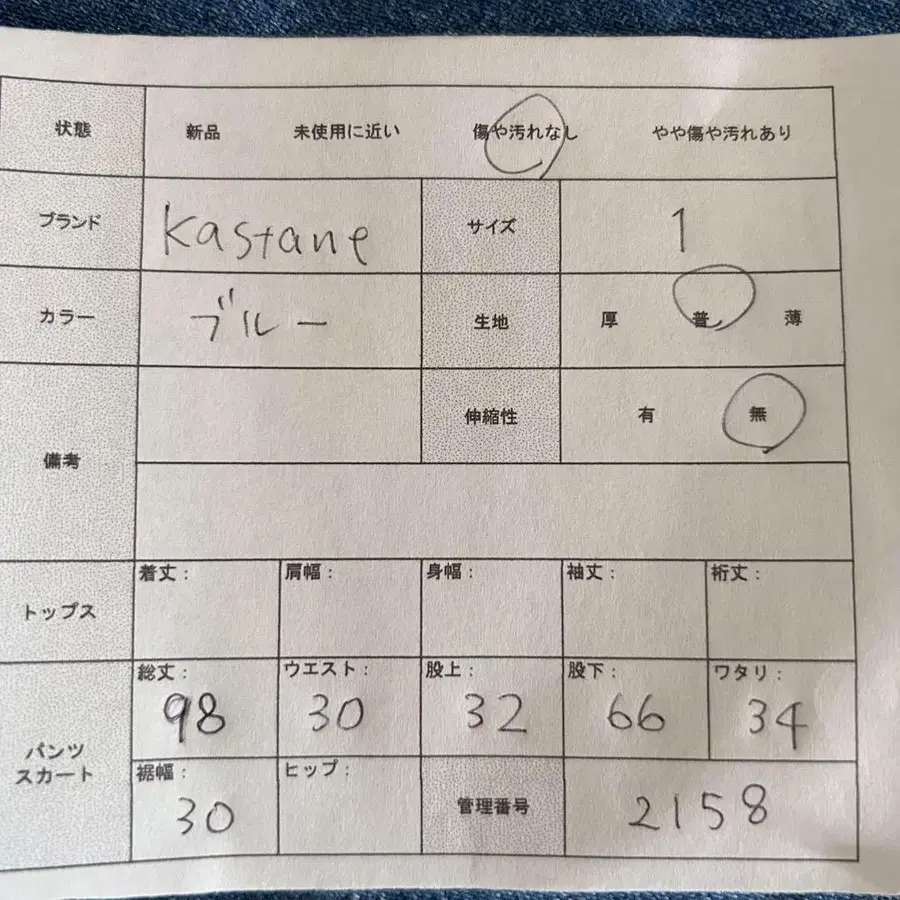 状態 新品 未使用に近い 傷や汚れなし やや傷や汚れあり
ブランド Kastane サイズ 1
カラー ブルー 生地 厚 普 薄
備考 伸縮性 有 無
トップス 着丈: 肩幅: 身幅: 袖丈: 裄丈:
パンツ スカート
総丈: ウエスト: 股上: 股下: ワタリ:
98 30 32 66 34
裾幅: ヒップ: 管理番号 2158
30